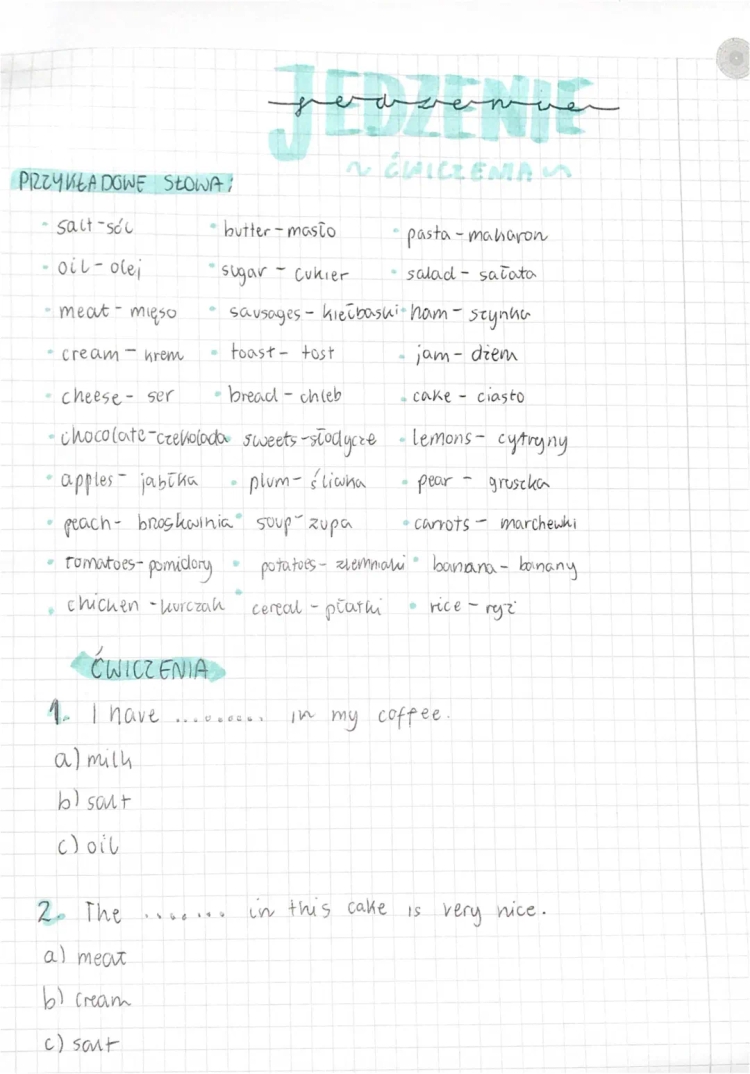 JEDZENIE
jedzenie
~ ĆWICZENIA ~
PRZYKŁADOWE SŁOWA:
• salt - sól • butter - masło • pasta - makaron
• oil - olej • sugar - cukier • salad - sałata
• meat - mięso • sausages - kiełbaski • ham - szynka
• cream - krem • toast - tost • jam - dżem
• cheese - ser • bread - chleb • cake - ciasto
• chocolate - czekolada • sweets - słodycze • lemons - cytryny
• apples - jabłka • plum - śliwka • pear - gruszka
• peach - broskwinia • soup - zupa • carrots - marchewki
• tomatoes - pomidory • potatoes - ziemniaki • banana - banany
• chicken - kurczak • cereal - płatki • rice - ryż
ĆWICZENIA
1. I have .......... in my coffee.
a) milk
b) salt
c) oil
2. The ........ in this cake is very nice.
a) meat
b) cream
c) salt